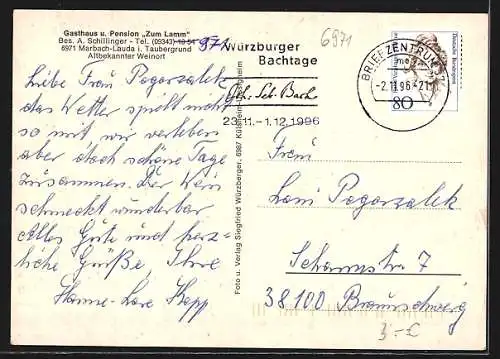 Gasthaus u. Pension „Zum Lamm“
Bes. A. Schillinger - Tel. (09343)
6971 Marbach-Lauda i. Taubergrund
Altbekannter Weinort
971
Liebe Frau Pogorzalek
das Wetter spielt nicht
so mit wir verleben
aber doch schöne Tage
zusammen. Der Wein
schmeckt wunderbar
Alles Gute und herz-
liche Grüße, Ihre
Hanne-Lore Kopp
Foto u. Verlag Siegfried Würzberger, 6987 Külsheim-
6971
Würzburger
Bachtage
Joh. Seb. Bach
23.11.-1.12.1996
BRIEFZENTRUM
-2.11.96-21
Deutsche Bundespost
80
Frau
Loni Pogorzalek
38100 Braunschweig
3,-€